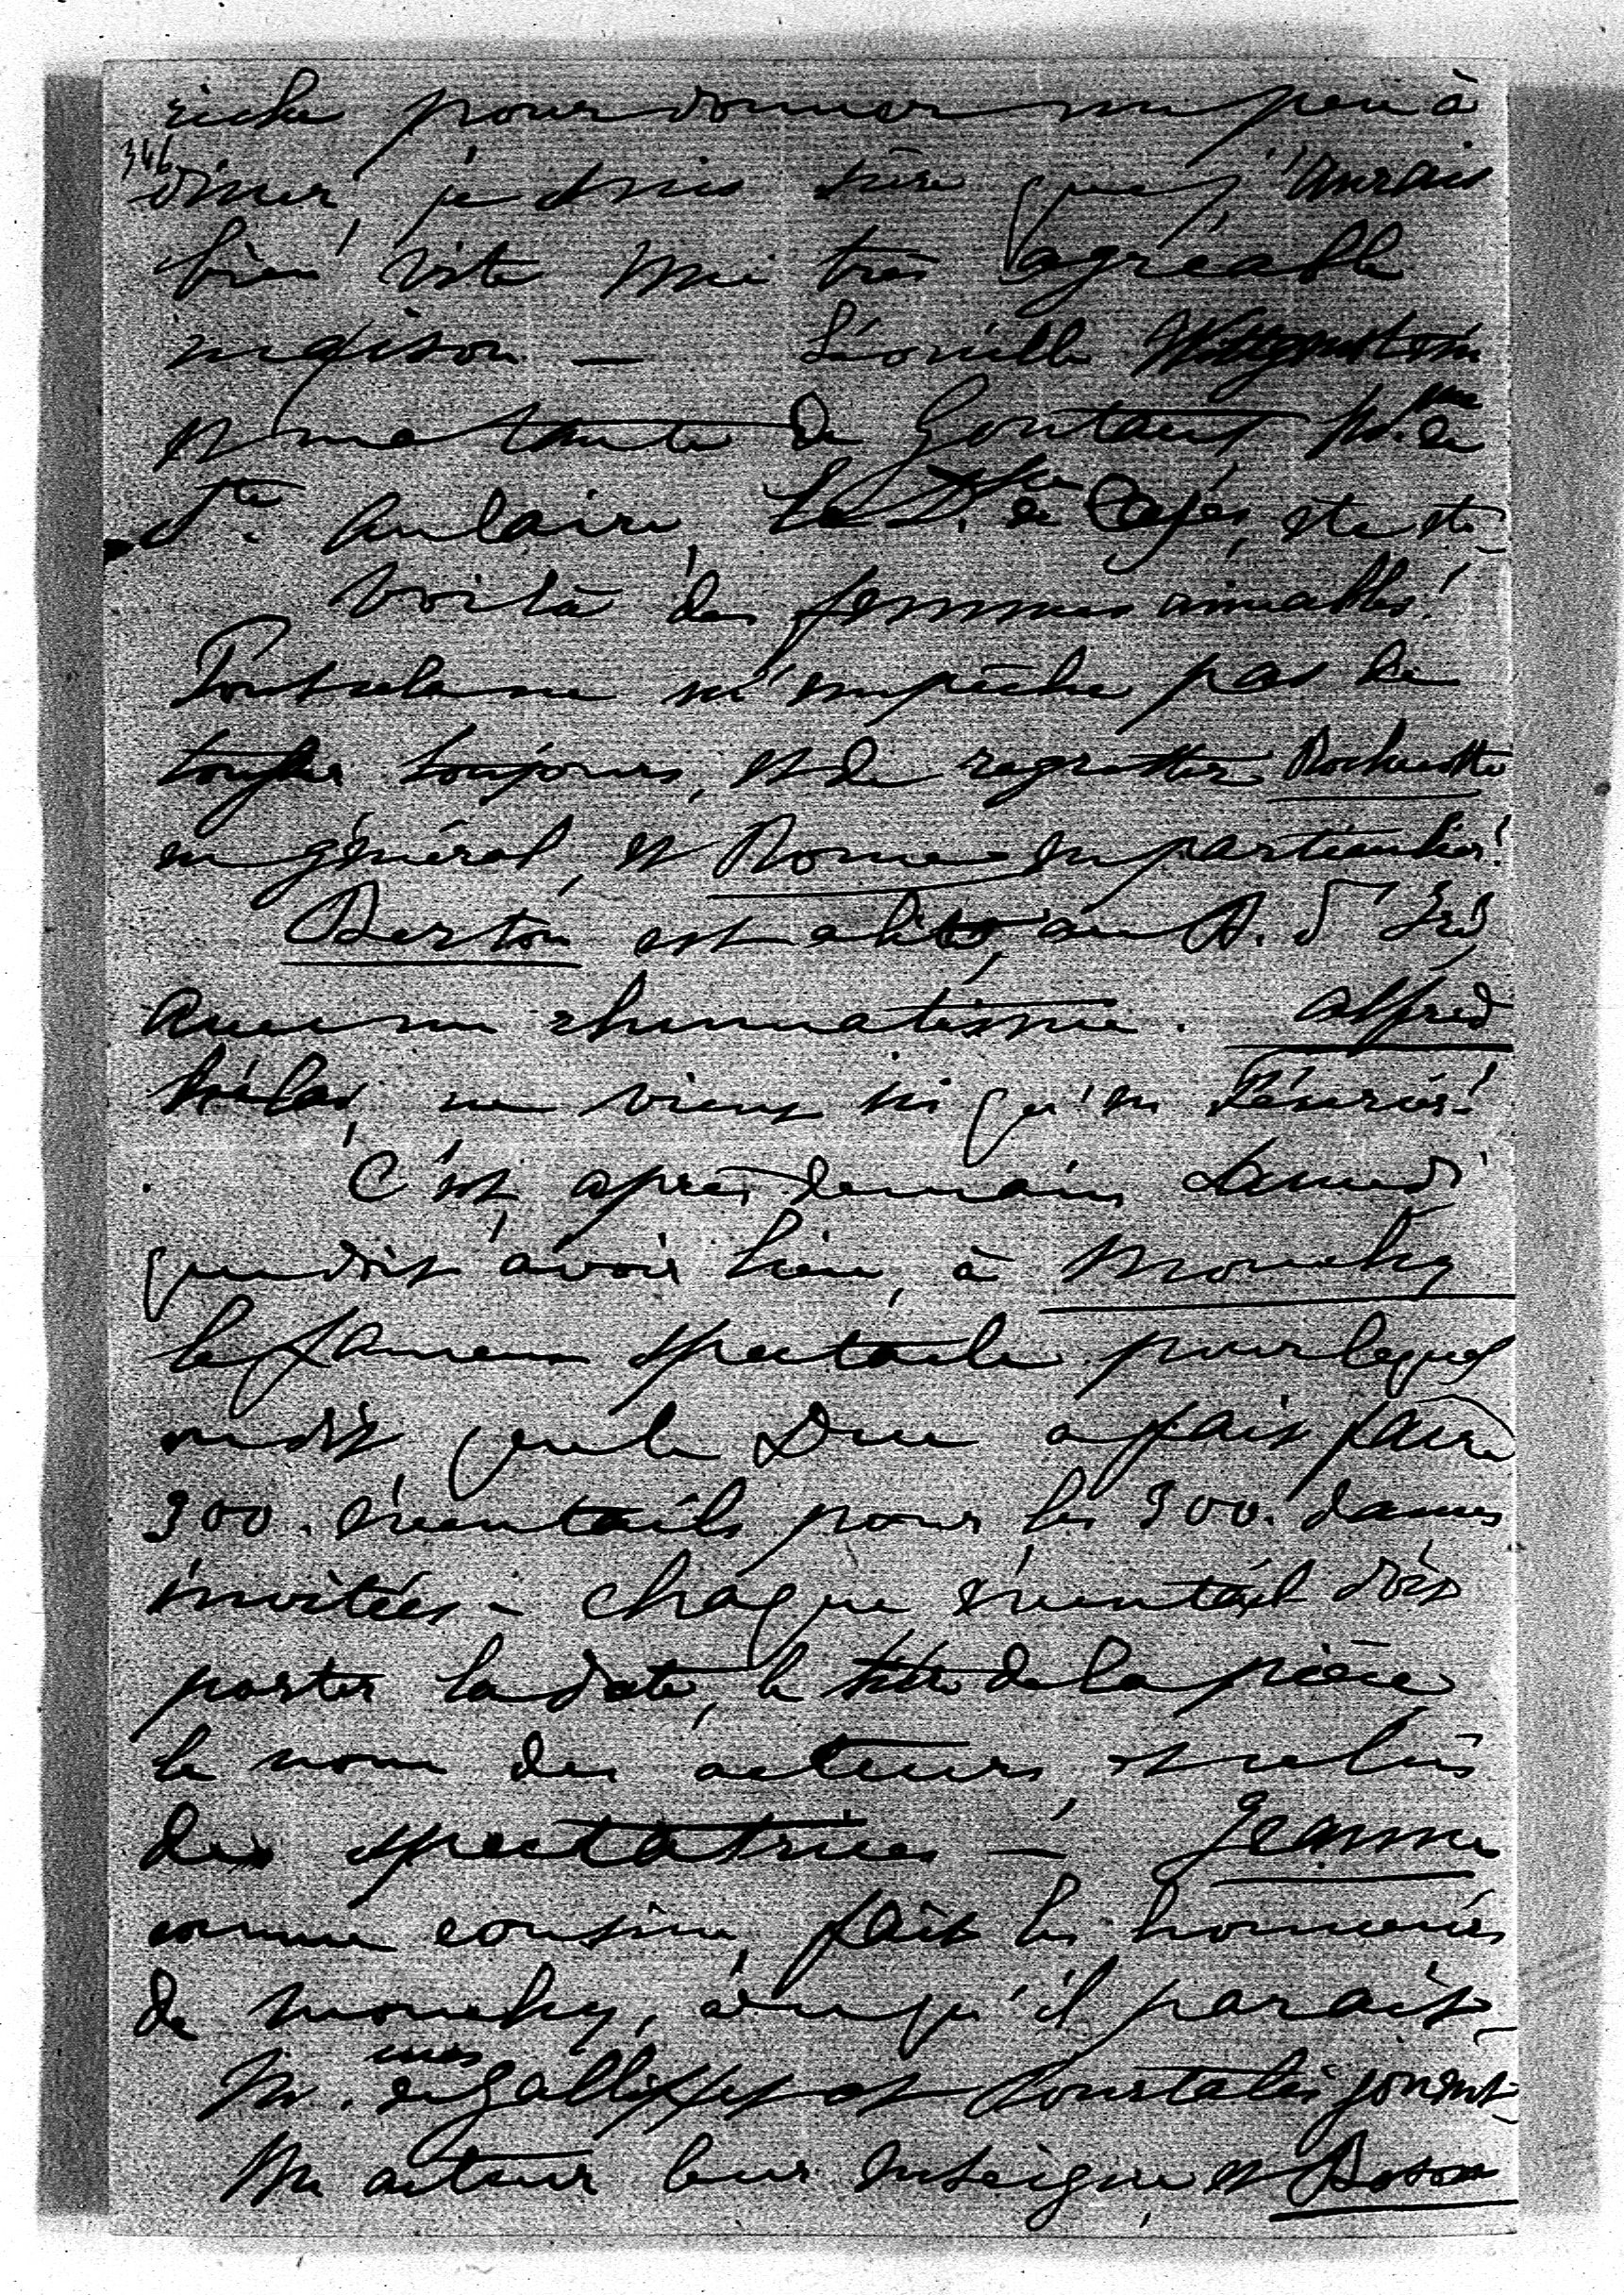 riche pour donner un peu à
346
dîner, je suis sûre que j'aurais
bien vite une très agréable
maison — Léonille
et ma tante de Gontaut, Mme de
Ste Aulaire, la Dsse de etc etc
Voilà des femmes aimables!
Tout cela ne m'empêche pas de
tousser toujours, et de regretter Rochecotte
en général, et Rome en particulier!
Berton est alité, au A.
avec un rhumatisme. Alfred
hélas, ne vient ici qu'en Février!
C'est après demain, Samedi
que doit avoir lieu, à Mouchy
le fameux spectacle pour lequel
on dit que le Duc a fait faire
300. éventails pour les 300. dames
invitées - chaque éventail doit
porter la date, le titre de la pièce
le nom des acteurs et celui
des spectatrices — Jeanne
comme cousine, fait les honneurs
de Mouchy, à ce qu'il paraît
Mmes de Galliffet et Pourtalès jouent
Un acteur leur enseigne et Boson